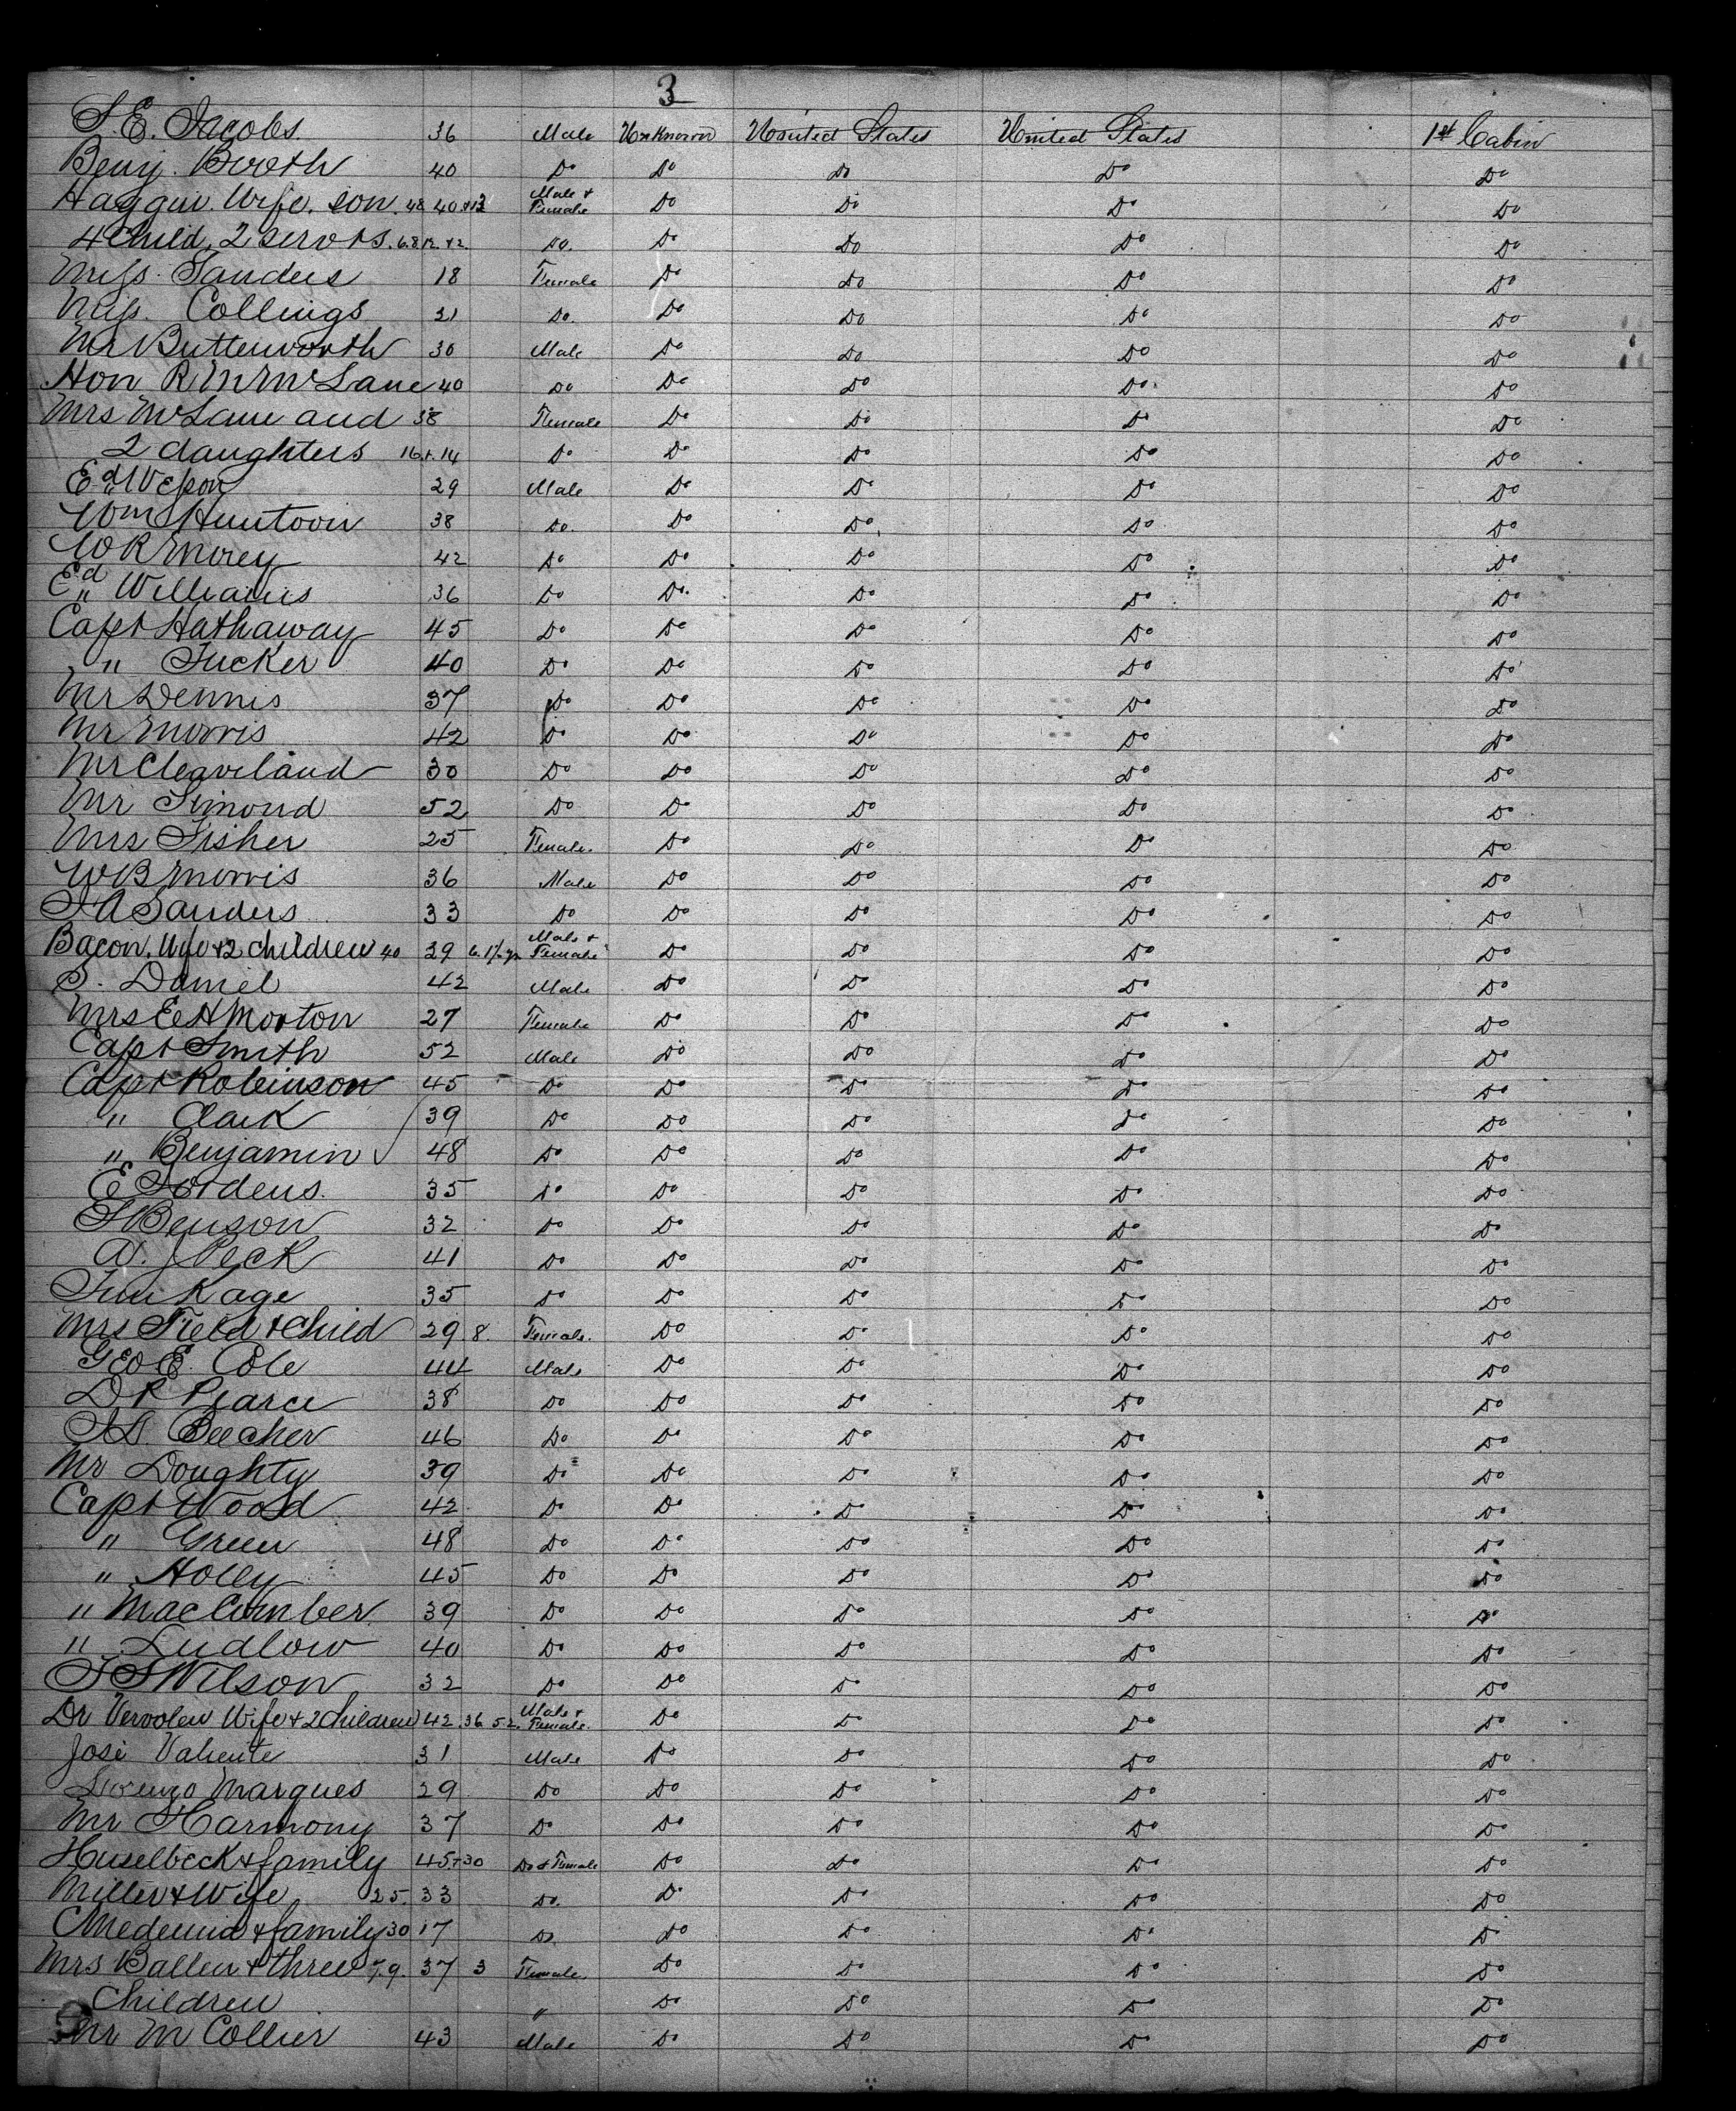 3
S. E. Jacobs 36 Male Unknown United States United States 1st Cabin
Benj. Booth 40 Do Do Do Do Do
Haggin. Wife. son. 48 40 + 13 Male + Female Do Do Do Do
4 Child, 2 servts. 6.8.12. +2 Do. Do Do Do Do
Miss. Sanders 18 Female Do Do Do Do
Miss. Collings 21 Do. Do Do Do Do
Mr Butterworth 30 Male Do Do Do Do
Hon R M McLane 40 Do Do Do Do. Do
Mrs McLane and 38 Female Do Do Do Do
2 daughters 16. + 14 Do Do Do Do Do
Ed Wesson 29 Male Do Do Do Do
Wm Huntoon 38 Do. Do Do Do Do
W R Morey 42 Do Do Do Do Do
Ed Williams 36 Do Do. Do Do Do
Capt Hathaway 45 Do Do Do Do Do
" Tucker 40 Do Do Do Do Do
Mr Dennis 37 Do Do Do Do Do
Mr Morris 42 Do Do Do Do Do
Mr Cleaveland 30 Do Do Do Do Do
Mr Simond 52 Do Do Do Do Do
Mrs Fisher 25 Female. Do Do Do Do
W B Morris 36 Male Do Do Do Do
J A Sanders 33 Do Do Do Do Do
Bacon, Wife + 2 children 40 39 6. 1/2 yr Male + Female Do Do Do Do
S. Daniel 42 Male Do Do Do Do
Mrs E H Morton 27 Female Do Do Do Do
Capt Smith 52 Male Do Do Do Do
Capt Robinson 45 Do Do Do Do Do
" Clark 39 Do Do Do Do Do
" Benjamin 48 Do Do Do Do Do
E Jordens. 35 Do Do Do Do Do
S Benson 32 Do Do Do Do Do
W. J Peck 41 Do Do Do Do Do
35 Do Do Do Do Do
Mrs Field + Child 29 8. Female. Do Do Do Do
Geo E. Cole 44 Male Do Do Do Do
D R Pearce 38 Do Do Do Do Do
S D. Beecher 46 Do Do Do Do Do
Mr Doughty 39 Do Do Do Do Do
Capt Wood 42 Do Do Do Do Do
" Green 48 Do Do Do Do Do
" Holly 45 Do Do Do Do Do
" MacCumber 39 Do Do Do Do Do
" Ludlow 40 Do Do Do Do Do
T S Wilson 32 Do Do Do Do Do
Dr Vervolen Wife + 2 Children 42 36 5.2. Male + Female. Do Do Do Do
José Valiente 31 Male Do Do Do Do
Lorenzo Marques 29 Do Do Do Do Do
Mr Harmony 37 Do Do Do Do Do
Huselbeck + family 45 + 30 Do + Female Do Do Do Do
Miller + Wife 25. 33 Do. Do Do Do Do
C Medeina + family 30 17 Do. Do Do Do Do
Mrs Ballen + three 7. 9. 37 3 Female. Do Do Do Do
Children " Do Do Do Do
Mr M Collier 43 Male Do Do Do Do